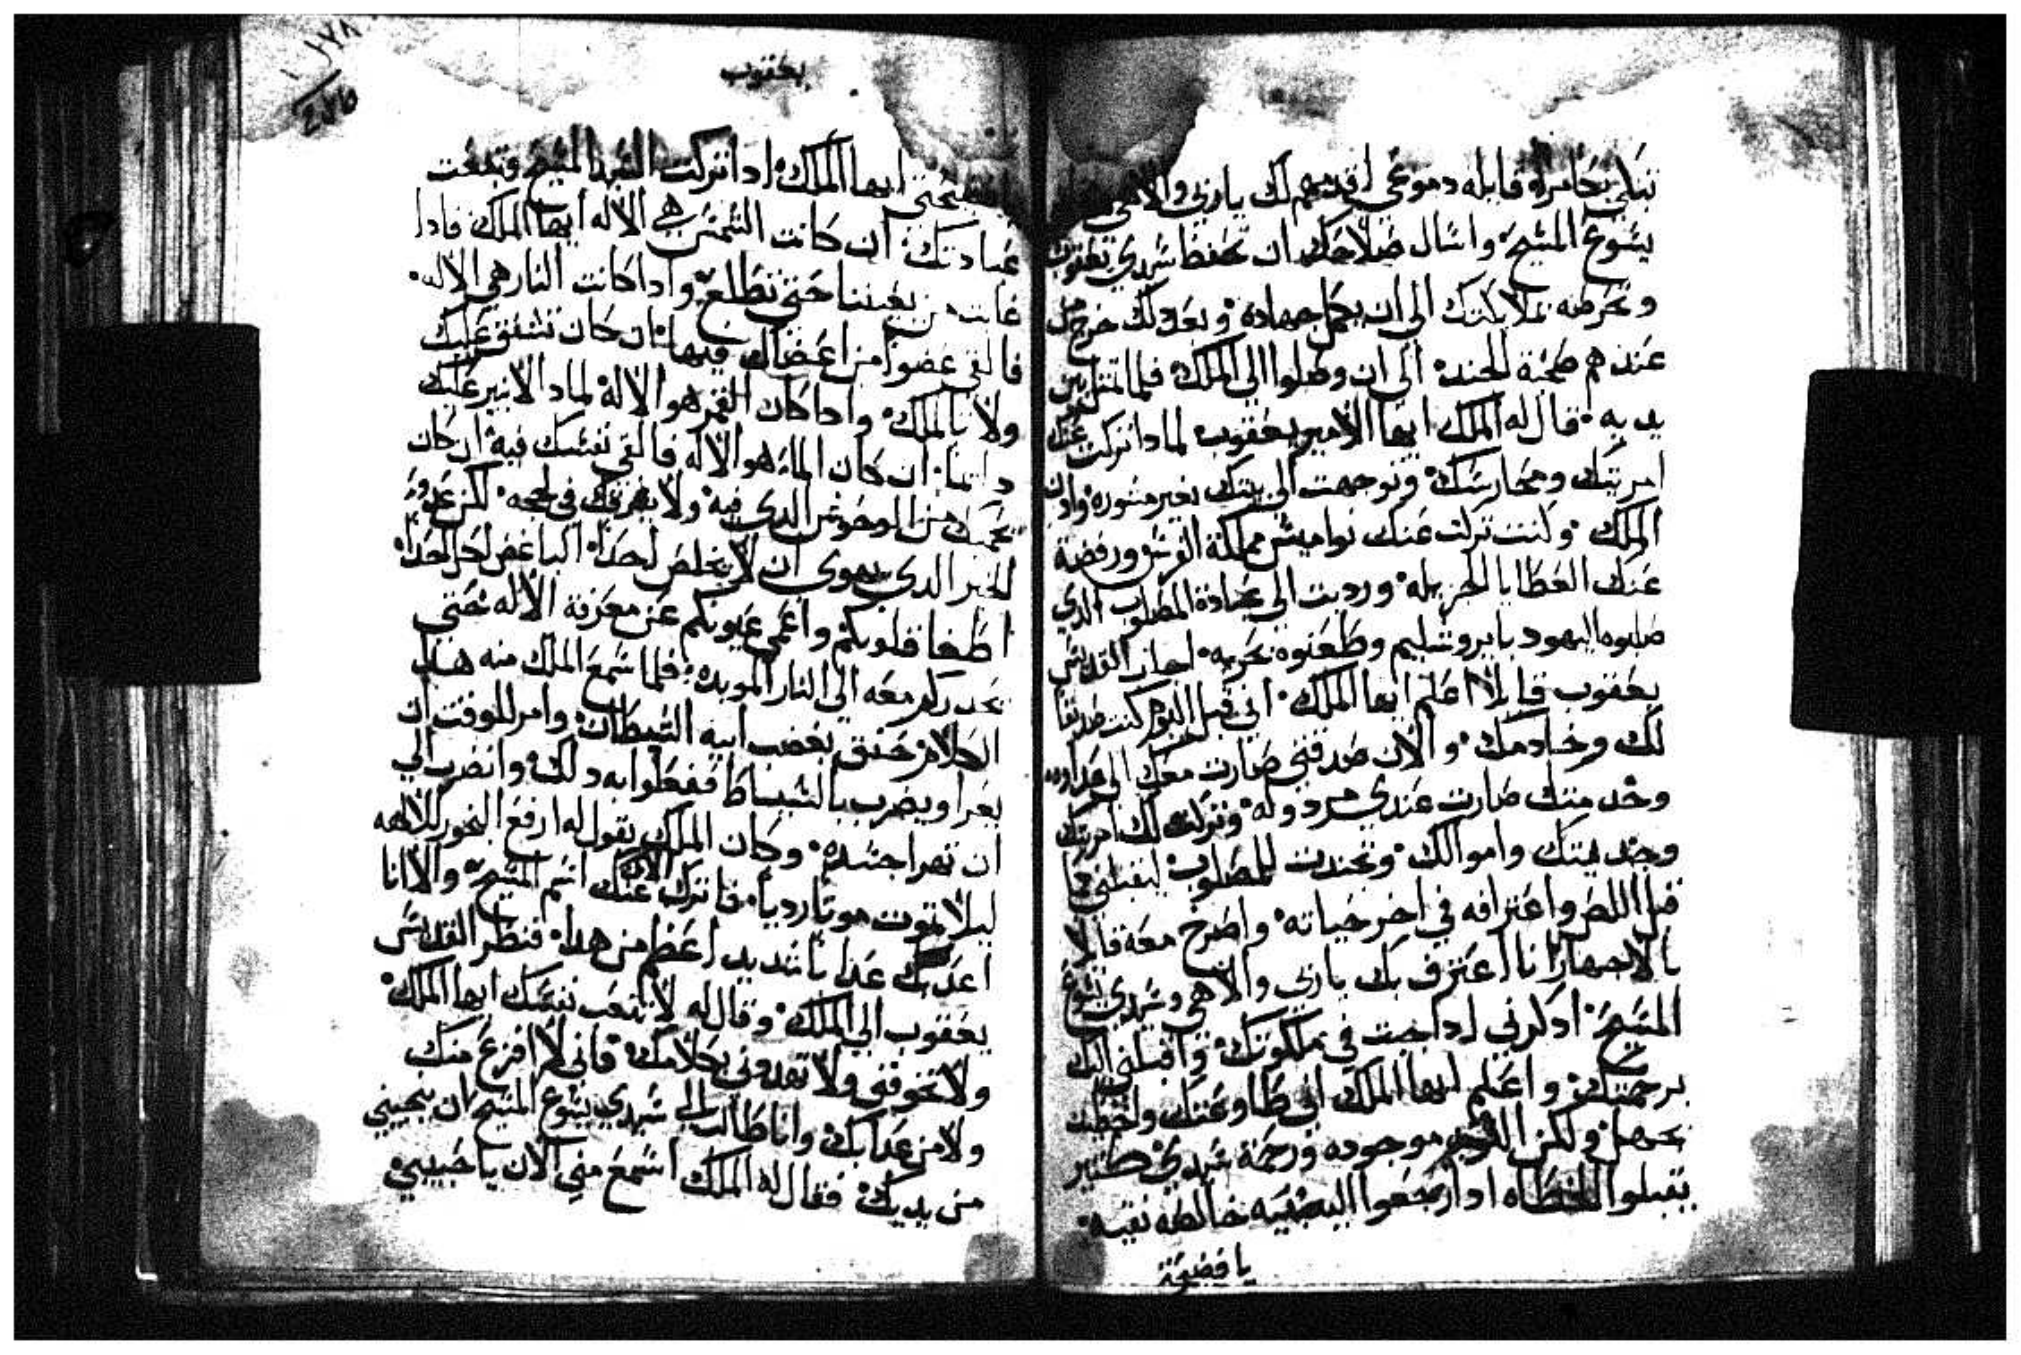 دموعي اقدمهم لك ياربي والاهي
يسوع المسيح واسال صلاحك ان تحفظ سيدي يعقوب
الي ان يكمل جهاده وبعد دلك خرج من
عندهم صحبة الجند الي ان وصلوا الي الملك فلما تمتل بين
يديه قال له الملك ايها الامير يعقوب لمادا تركت عنك
امريتك ومجارستك وتوجهت الي بيتك بغير مشوره وادن
الملك وكنت تركت عنك نواميس مملكة الفرس ورفضة
عنك العطايا الجزيله ورديت الي عبادة المصلوب الدي
صلبوه اليهود بايروشليم وطعنوه بحربه اجاب القديس
يعقوب قايلا اعلم ايها الملك اني قبل اليوم كنت صديقا
لك وخادمك والان صدقتي صارت معك الي عداوه
وخدمتك صارت عندي مردوله وتركت لك امريتك
وجنديتك واموالك وتجندت للمصلوب ليقبلني كما
قبل اللص واعترافه في اخر حياته واصرخ معه قايلا
بالاجهار انا اعترف بك ياربي والاهي وسيدي يسوع
المسيح ادكرني ادا جيت في ملكوتك واقبلني اليك
برحمتك واعلم ايها الملك اني طاوعتك واخطيت
بجهل ولكن التوبه موجوده ورحمة سيدي كتير
يقبلوا الخطاه ادا رجعوا اليه بنيه خالصه نقيه
يا فضيحتي
يعقوب
يا فضيحتي ايها الملك ادا تركت السيد المسيح وتبعت
عبادتك ان كانت الشمس هي الاله ايها الملك فادا
غابت من يغيتنا حتي تطلع وادا كانت النار هي الاله
فالقي عضوا من اعضاك فيها ان كان تشفق عليك
ولا بالملك وادا كان القمر هو الاله لمادا لا ينير عليك
دايما ان كان الماء هو الاله فالقي نفسك فيه ان كان
يحميك من الوحوش الدي فيه ولا يغرقك في لججه لكن عدو
الخير الدي يهوي ان لا يخلص احدا الباغض لكل احدا
اطغا قلوبكم واعمي عيونكم عن معرفة الاله حتي
يحدركم معه الي النار الموبده فلما سمع الملك منه هدا
الكلام حنق بغضب ابيه الشيطان وامر للوقت ان
يعرا ويضرب بالسياط ففعلوا به دلك وانضرب الي
ان تهرا جسده وكان الملك يقول له ارفع البخور للالهه
ليلا تموت موتا رديا فاترك الان عنك اسم المسيح والا انا
اعدبك عدابا شديد اعظم من هدا فنظر القديس
يعقوب الي الملك وقال له لا تتعب نفسك ايها الملك
ولا تخوفني ولا تهددني بكلامك فاني لا افزع منك
ولا من عدابك وانا طالب الي سيدي يسوع المسيح ان ينجيني
من يديك فقال له الملك اسمع مني الان يا حبيبي